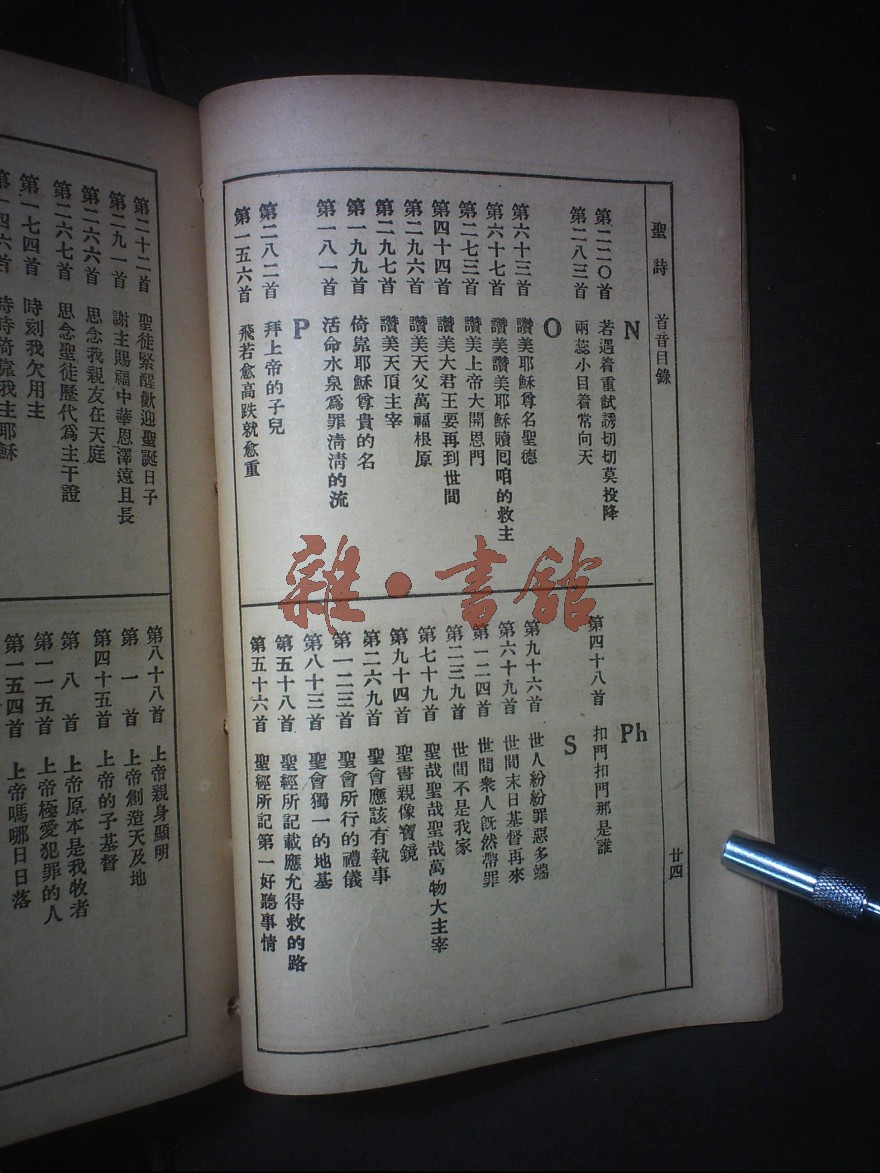 聖詩 首音目錄 廿四
N
第二二〇首 若遇着重試誘切切莫投降
第二八三首 兩蕊小目着常向天
O
第六十三首 讚美耶穌尊名聖德
第六十七首 讚美讚美耶穌贖囘咱的救主
第二七三首 讚美上帝大開恩門
第四十四首 讚美大君王要再到世間
第二九六首 讚美天父萬福根原
第二九七首 讚美天頂主宰
第一九九首 倚靠耶穌尊貴的名
第一八一首 活命水泉爲罪淸淸的流
P
第二八二首 拜上帝的子兒
第一五六首 飛若愈高跌就愈重
Ph
第四十八首 扣門扣門那是誰
S
第九十六首 世人紛紛罪惡多端
第六十九首 世間末日基督再來
第一二四首 世間衆人旣然帶罪
第二三九首 世間不是我家
第七十九首 聖哉聖哉聖哉萬物大主宰
第九十四首 聖書親像寶鏡
第二六九首 聖會應該有執事
第一二三首 聖會所行的禮儀
第八十三首 聖會獨一的地基
第五十八首 聖經所記載應允得救的路
第五十六首 聖經所記第一好聽事情
第二十二首 聖徒緊醒歡迎聖誕日子
第二九一首 謝主賜福中華恩澤遠且長
第二六六首 思念我親友在天庭
第二六七首 思念聖徒歷代爲主干證
第一七四首 時刻我欠用主
第一四六首 時時倚靠我主耶穌
第八十八首 上帝親身顯明
第一首 上帝創造天及地
第四十五首 上帝的子基督
第八首 上帝原本是我牧者
第一一五首 上帝極愛犯罪的人
第一五四首 上帝嗎哪日日落
雜·書館